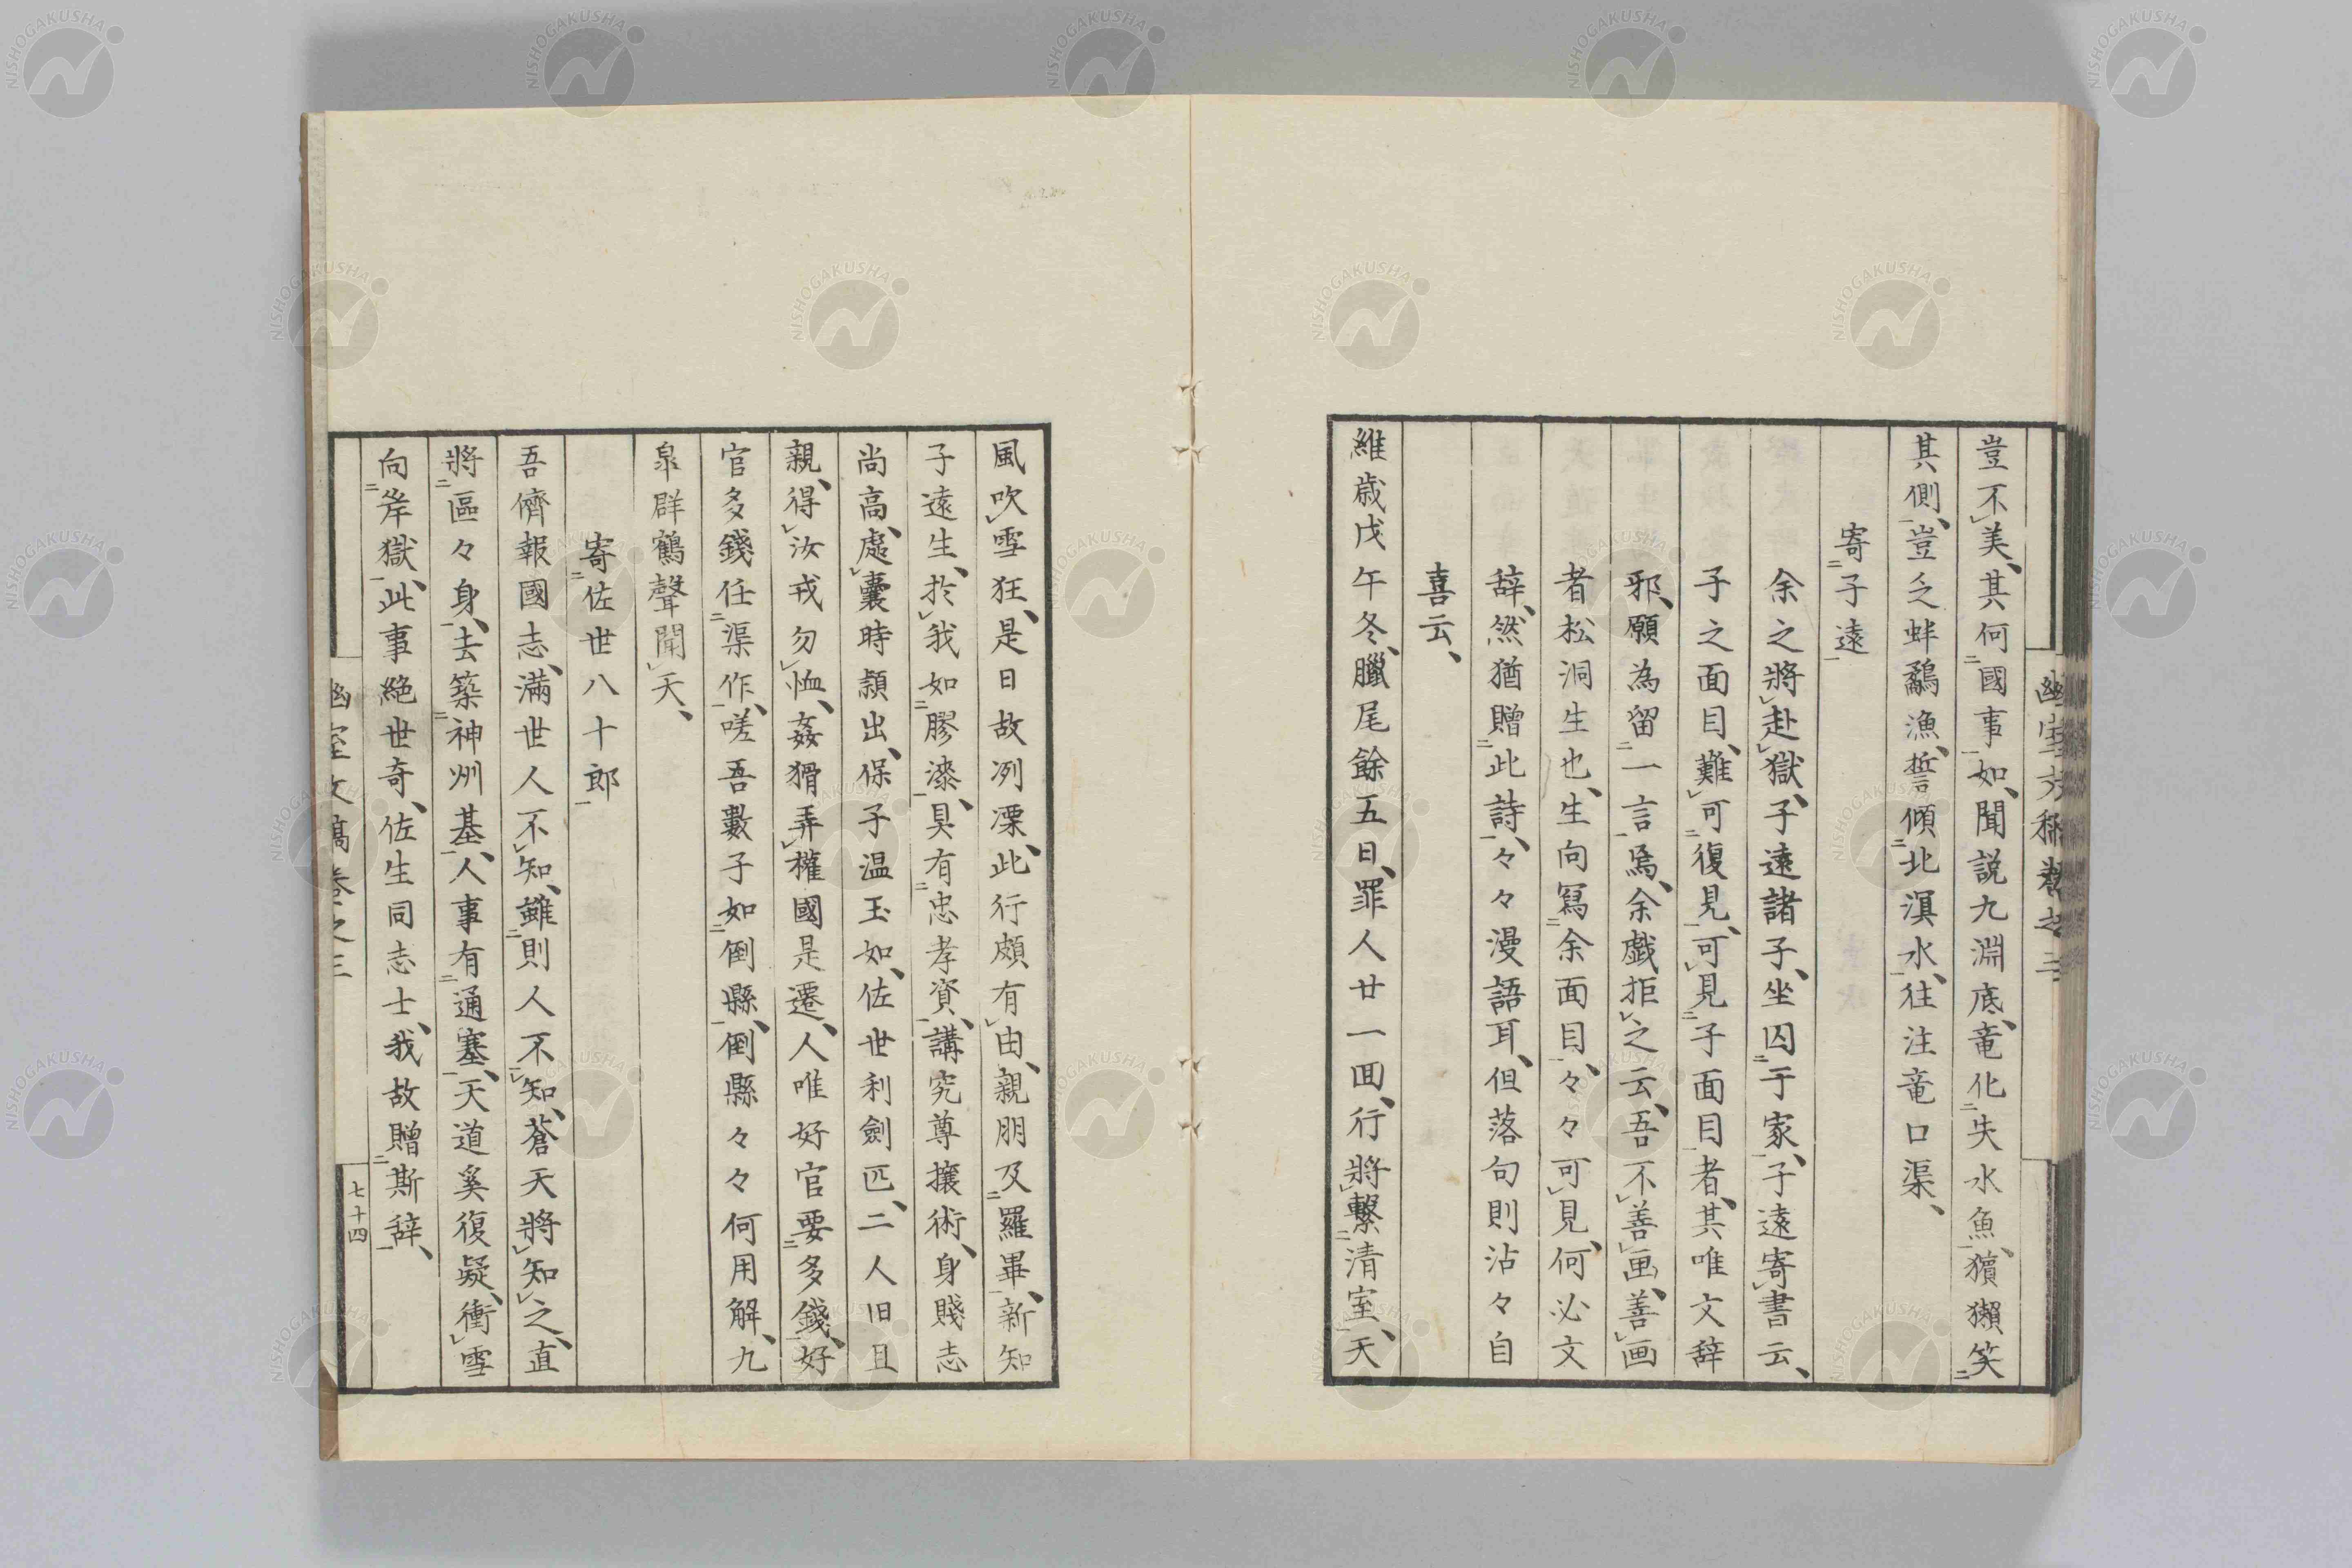 豈不美、其何國事如、聞説九淵底、竜化失水魚、獱獺笑
其側、豈乏蚌鷸漁、誓傾北溟水、往注竜口渠、
寄子遠
余之將赴獄、子遠諸子、坐囚于家、子遠寄書云、
子之面目、難可復見、可見子面目者、其唯文辞
邪、願為留一言焉、余戯拒之云、吾不善画、善画
者松洞生也、生向冩余面目、々々可見、何必文
辞、然猶贈此詩、々々漫語耳、但落句則沾々自
喜云、
維歳戊午冬、臘尾餘五日、罪人廿一回、行將繫清室、天
風吹雪狂、是日故冽凓、此行頗有由、親朋及羅畢、新知
子遠生、於我如膠漆、具有忠孝資、講究尊攘術、身賤志
尚高、處囊時頴出、保子温玉如、佐世利劍匹、二人旧且
親、得汝戎勿恤、姦猾弄權國是遷、人唯好官要多錢、好
官多錢任渠作、嗟吾數子如倒縣、倒縣々々何用解、九
皐群鶴聲聞天、
寄佐世八十郎
吾儕報國志、滿世人不知、雖則人不知、蒼天將知之、直
將區々身、去築神州基、人事有通塞、天道奚復疑、衝雪
向岸獄、此事絶世奇、佐生同志士、我故贈斯辞、
幽室文稿卷之三
七十四